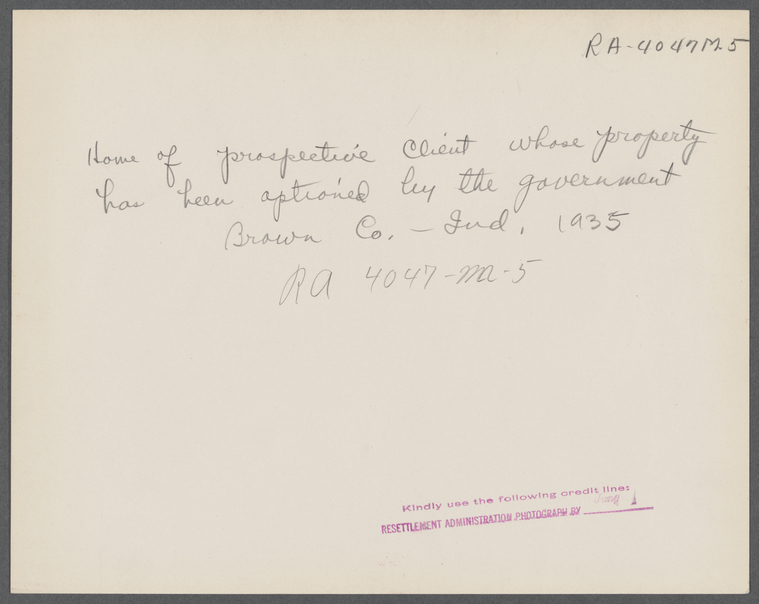 RA-4047M5
Home of prospective client whose property
has been optioned by the government
Brown Co. - Ind. 1935
RA 4047-M-5
Kindly use the following credit line:
RESETTLEMENT ADMINISTRATION PHOTOGRAPH BY